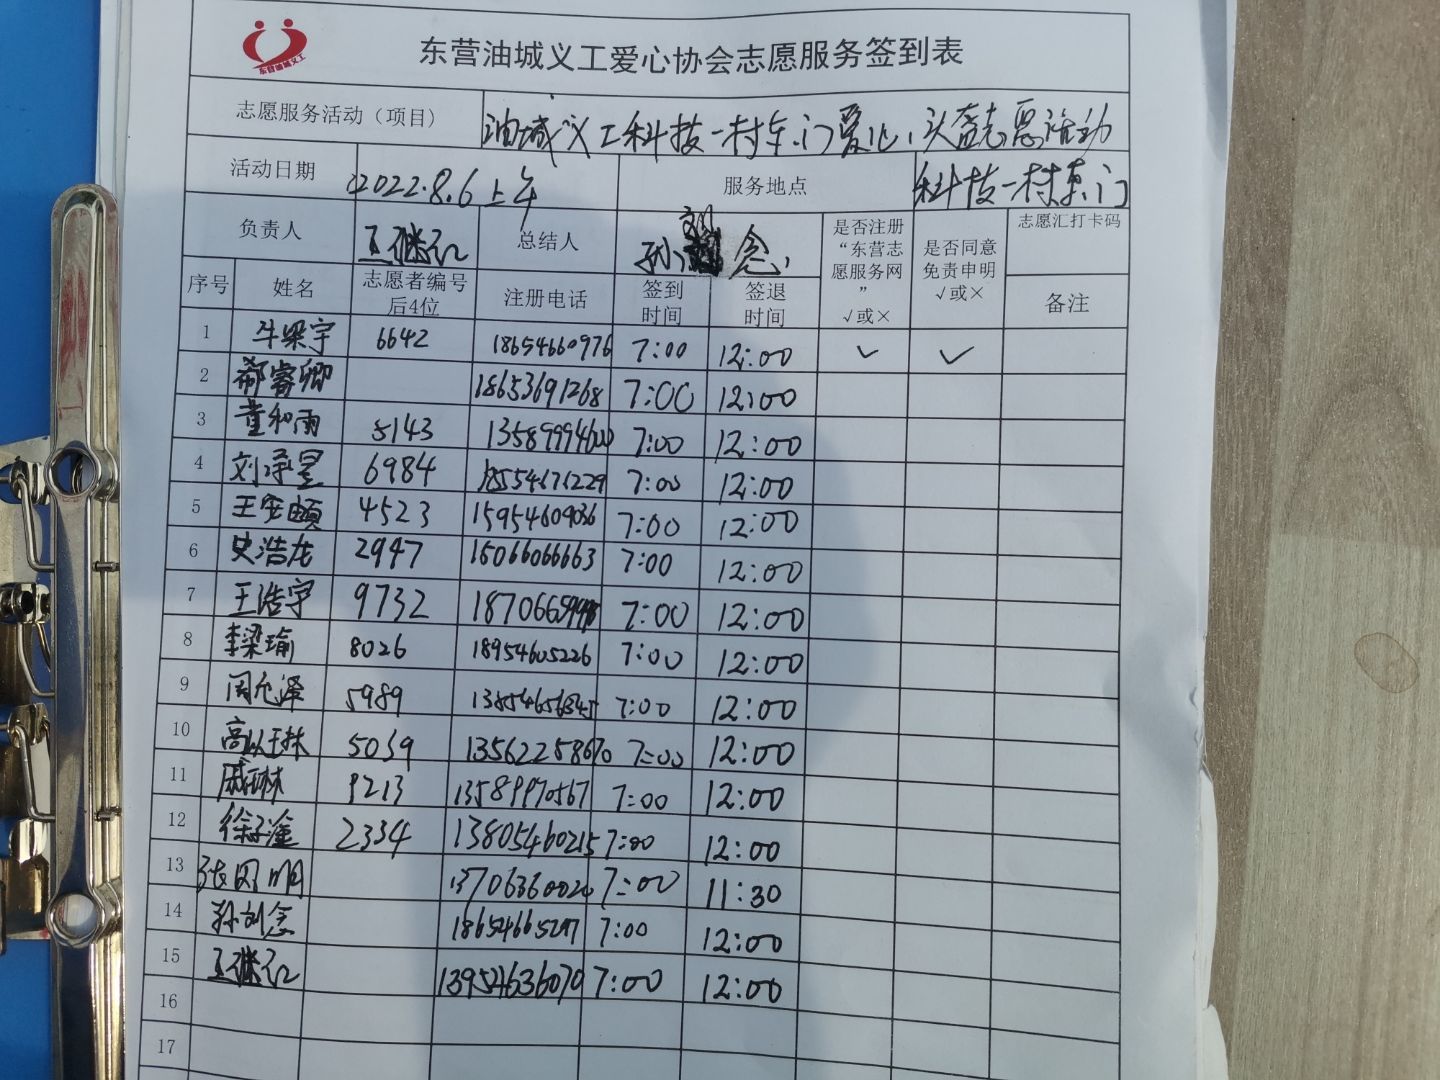 东营油城义工
东营油城义工爱心协会志愿服务签到表
志愿服务活动（项目） 油城义工科技一村东门爱心头盔志愿活动
活动日期 2022.8.6上午 服务地点 科技一村东门
负责人 王继红 总结人 孙刘念 是否注册“东营志愿服务网” √或× 是否同意免责申明 √或× 志愿汇打卡码
序号 姓名 志愿者编号后4位 注册电话 签到时间 签退时间 备注
1 牛梁宇 6642 18654660976 7:00 12:00 ✓ ✓
2 郗睿卿 18653691268 7:00 12:00
3 董和雨 5143 7:00 12:00
4 刘承昱 6984 18554676229 7:00 12:00
5 王安頔 4523 15954609036 7:00 12:00
6 史浩龙 2947 15066066663 7:00 12:00
7 王浩宇 9732 7:00 12:00
8 李梁瑜 8026 18954605226 7:00 12:00
9 周允泽 5989 7:00 12:00
10 5039 13562258670 7:00 12:00
11 9213 13589970567 7:00 12:00
12 徐子淦 2334 13805460215 7:00 12:00
13 张图明 13706360020 7:00 11:30
14 孙刘念 7:00 12:00
15 王继红 13954636070 7:00 12:00
16
17